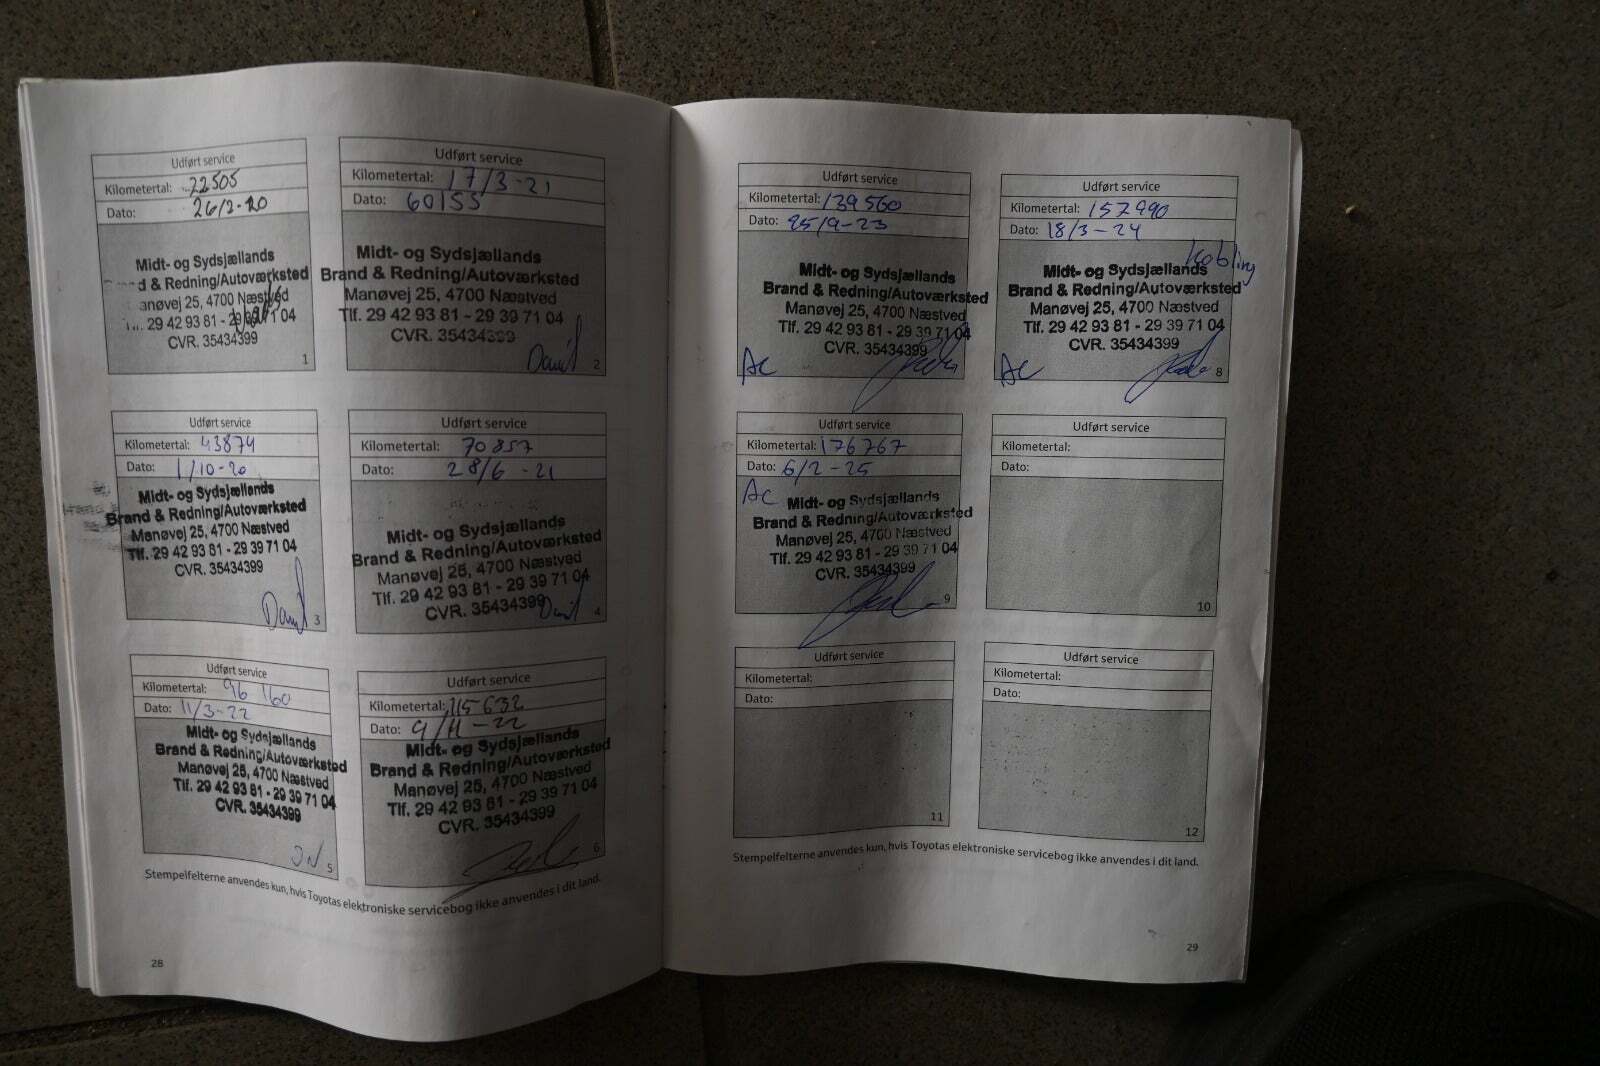 Udført service
Kilometertal: 22505
Dato: 26/2-20
Midt- og Sydsjællands
d & Redning/Autoværksted
anøvej 25, 4700 Næstved
29 42 93 81 - 29 39 71 04
CVR. 35434399
1
Udført service
Kilometertal: 17/3-21
Dato: 60155
Midt- og Sydsjællands
Brand & Redning/Autoværksted
Manøvej 25, 4700 Næstved
Tlf. 29 42 93 81 - 29 39 71 04
CVR. 35434399
2
Udført service
Kilometertal: 43874
Dato: 1/10-20
Midt- og Sydsjællands
Brand & Redning/Autoværksted
Manøvej 25, 4700 Næstved
Tlf. 29 42 93 81 - 29 39 71 04
CVR. 35434399
3
Udført service
Kilometertal: 70857
Dato: 28/6-21
Midt- og Sydsjællands
Brand & Redning/Autoværksted
Manøvej 25, 4700 Næstved
Tlf. 29 42 93 81 - 29 39 71 04
CVR. 35434399
4
Udført service
Kilometertal: 96160
Dato: 11/3-22
Midt- og Sydsjællands
Brand & Redning/Autoværksted
Manøvej 25, 4700 Næstved
Tlf. 29 42 93 81 - 29 39 71 04
CVR. 35434399
5
Udført service
Kilometertal: 115632
Dato: 9/11-22
Midt- og Sydsjællands
Brand & Redning/Autoværksted
Manøvej 25, 4700 Næstved
Tlf. 29 42 93 81 - 29 39 71 04
CVR. 35434399
6
Stempelfelterne anvendes kun, hvis Toyotas elektroniske servicebog ikke anvendes i dit land.
28
Udført service
Kilometertal: 139560
Dato: 25/9-23
Midt- og Sydsjællands
Brand & Redning/Autoværksted
Manøvej 25, 4700 Næstved
Tlf. 29 42 93 81 - 29 39 71 04
CVR. 35434399
AC
Udført service
Kilometertal: 157990
Dato: 18/3-24
Kobling
Midt- og Sydsjællands
Brand & Redning/Autoværksted
Manøvej 25, 4700 Næstved
Tlf. 29 42 93 81 - 29 39 71 04
CVR. 35434399
AC
8
Udført service
Kilometertal: 176767
Dato: 6/2-25
AC
Midt- og Sydsjællands
Brand & Redning/Autoværksted
Manøvej 25, 4700 Næstved
Tlf. 29 42 93 81 - 29 39 71 04
CVR. 35434399
9
Udført service
Kilometertal:
Dato:
10
Udført service
Kilometertal:
Dato:
11
Udført service
Kilometertal:
Dato:
12
Stempelfelterne anvendes kun, hvis Toyotas elektroniske servicebog ikke anvendes i dit land.
29